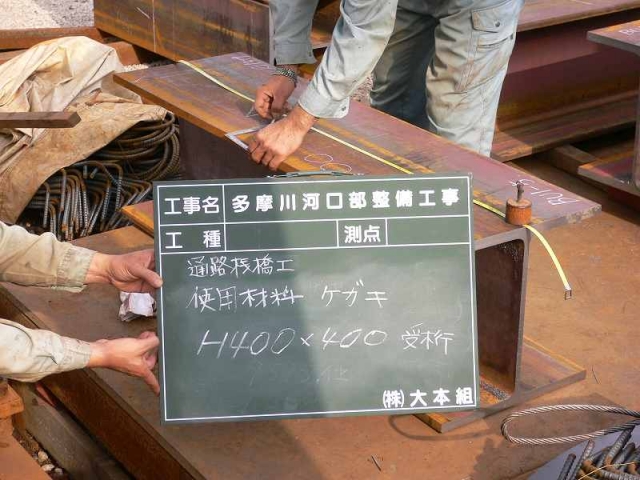 工事名 多摩川河口部整備工事
工種 測点
通路桟橋工
使用材料 ケガキ
H400×400 受桁
(株)大本組